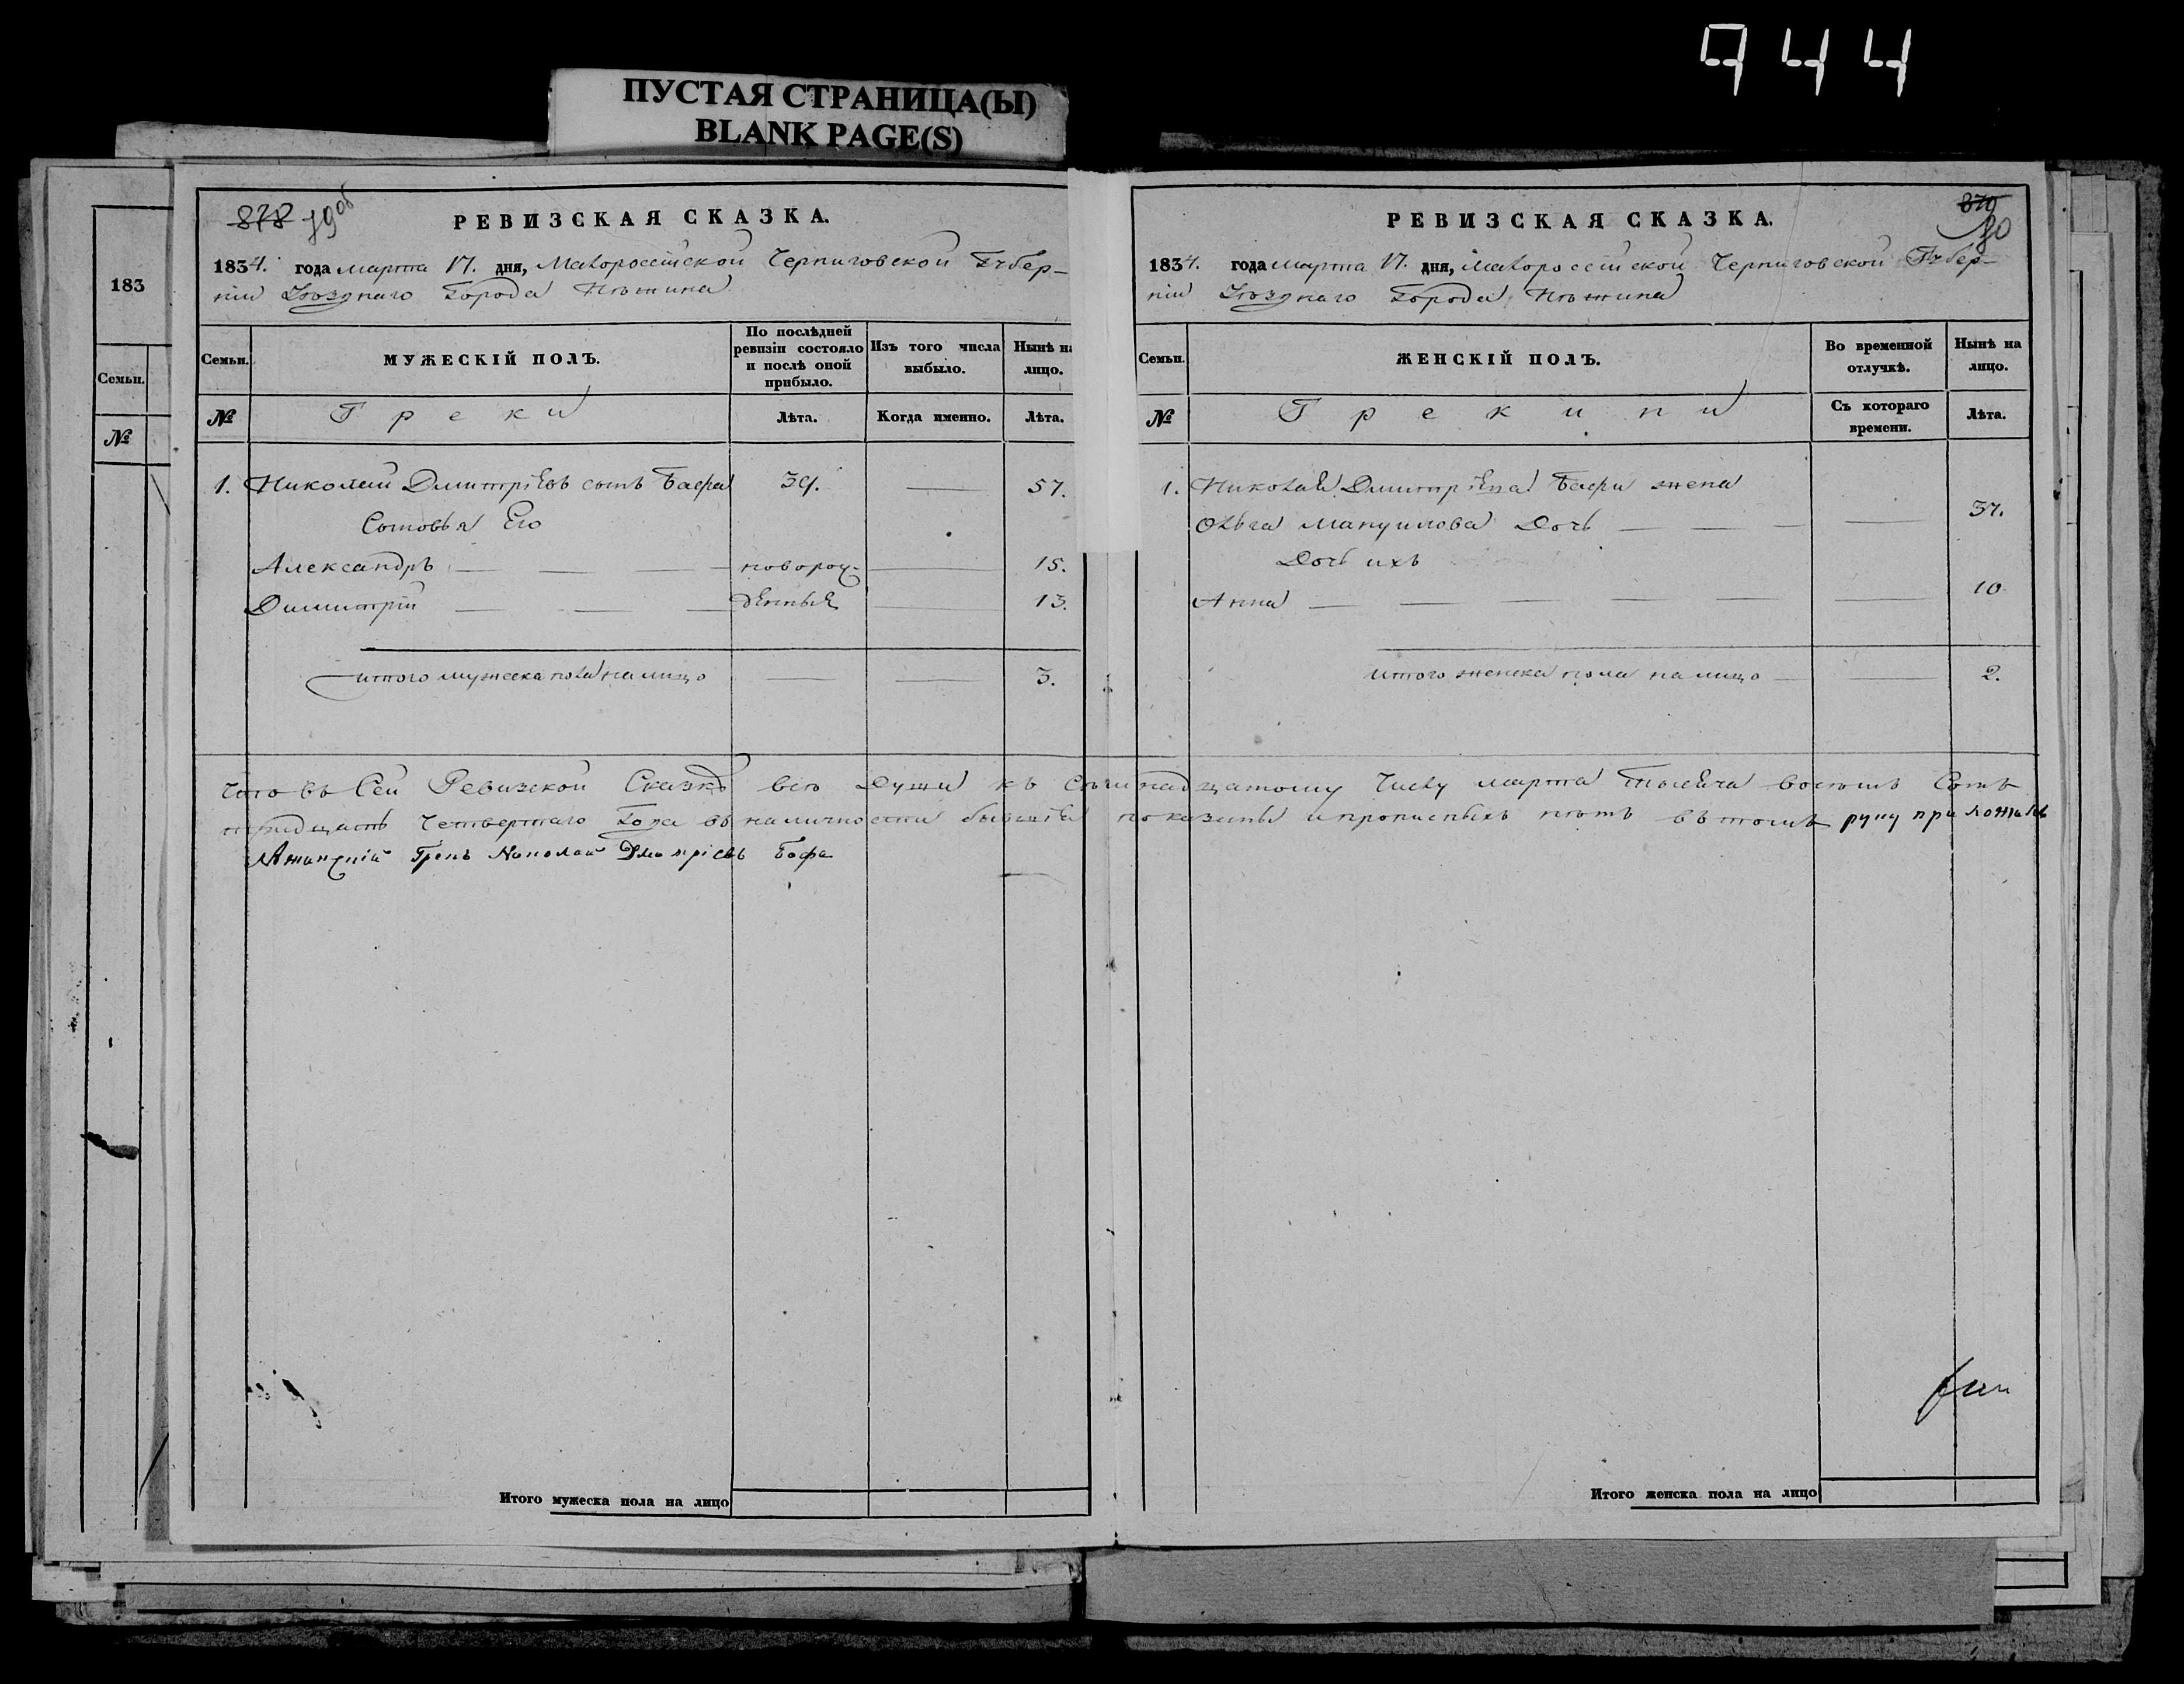 944
ПУСТАЯ СТРАНИЦА(Ы)
BLANK PAGE(S)
183
Семьи.
№
878 79об
РЕВИЗСКАЯ СКАЗКА.
1834. года марта 17. дня, Малороссійской Черниговской Губер-
ніи Уѣзднаго Города Нѣжина
Семьи. МУЖЕСКІЙ ПОЛЪ. По послѣдней ревизіи состояло и послѣ оной прибыло. Изъ того числа выбыло. Нынѣ на лицо.
№ Греки Лѣта. Когда именно. Лѣта.
1. Николай Дмитріевъ сынъ Бафа 39. — 57.
Сыновья Его
Александръ — — — новорож- — 15.
Димитрій — — — денные — 13.
итого мужеска пола на лицо — — 3.
879
80
РЕВИЗСКАЯ СКАЗКА.
1834. года марта 17. дня, Малороссійской Черниговской Губер-
ніи Уѣзднаго Города Нѣжина
Семьи. ЖЕНСКІЙ ПОЛЪ. Во временной отлучкѣ. Нынѣ на лицо.
№ Грекини Съ котораго времени. Лѣта.
1. Николая Дмитріева Бафы жена
Ольга Мануилова Дочь — — — — 37.
Дочь ихъ
Анна — — — — — — 10
итого женска пола на лицо — — 2.
Что въ Сей Ревизской Сказкѣ всѣ Души къ Семнадцатому Числу марта Тысяча восемь Сотъ
тридцать Четвертаго Года въ наличности бывшія показаны и прописныхъ нѣтъ въ томъ руку приложилъ
Нѣжинскій Грекъ Николай Дмитріевъ Бафа
Итого мужеска пола на лицо
Итого женска пола на лицо